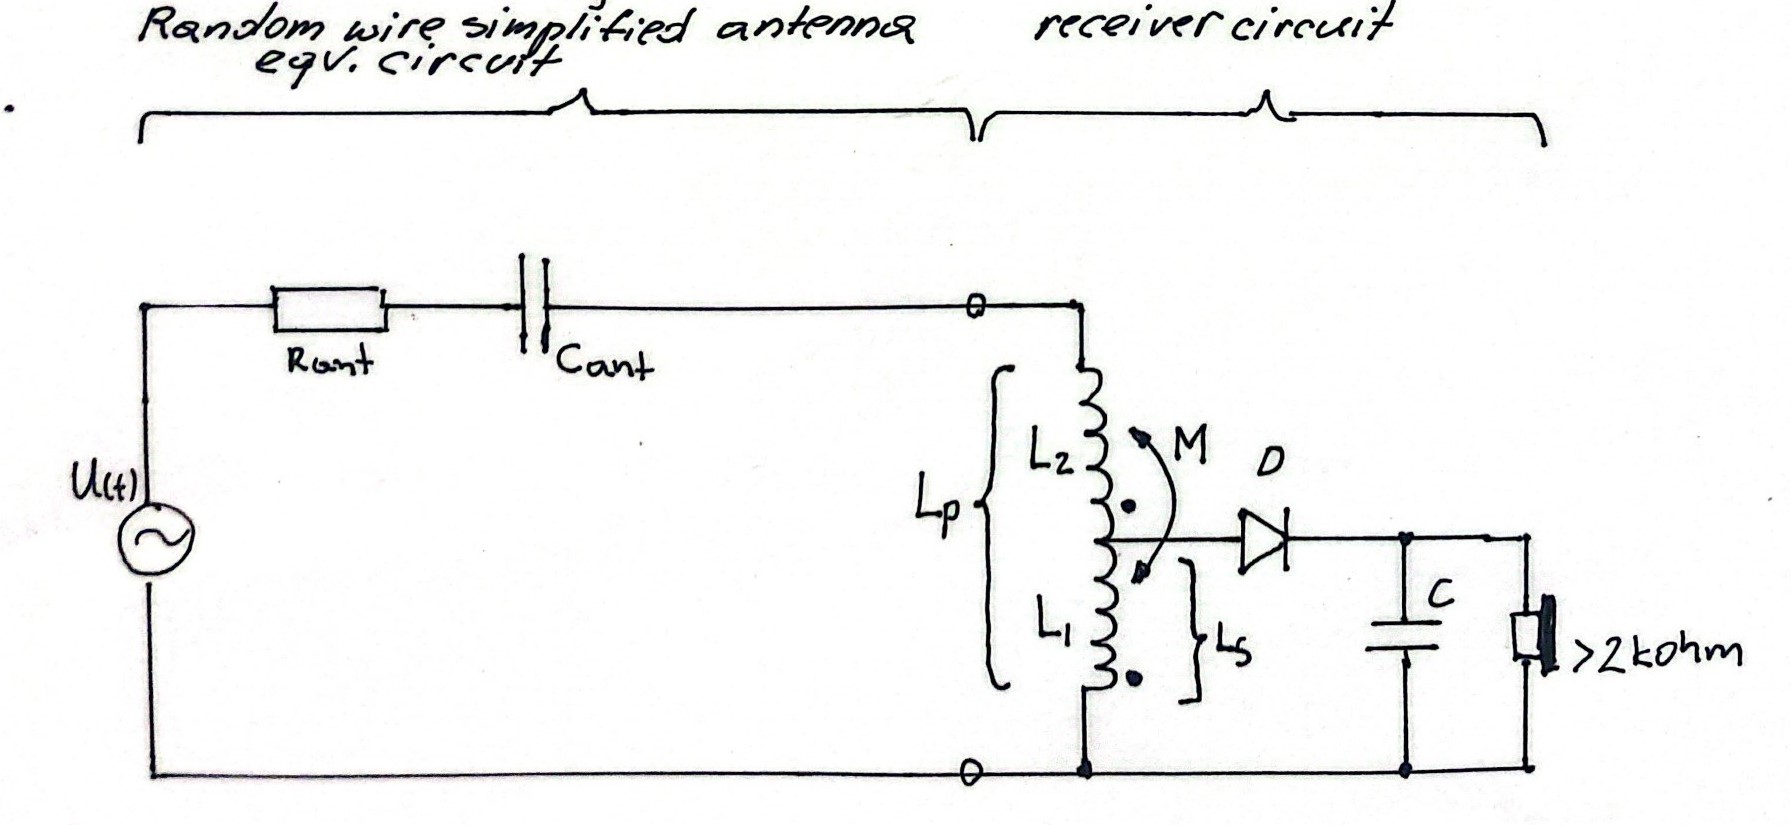 Random wire simplified antenna
eqv. circuit
receiver circuit
Rant
Cant
U(t)
Lp
L2
M
D
L1
Ls
C
>2kohm